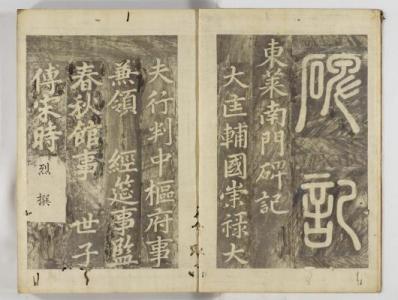 碑記
東萊南門碑記
大匡輔國崇祿大
夫行判中樞府事
兼領 經筵事監
春秋館事 世子
傅宋時
烈 撰